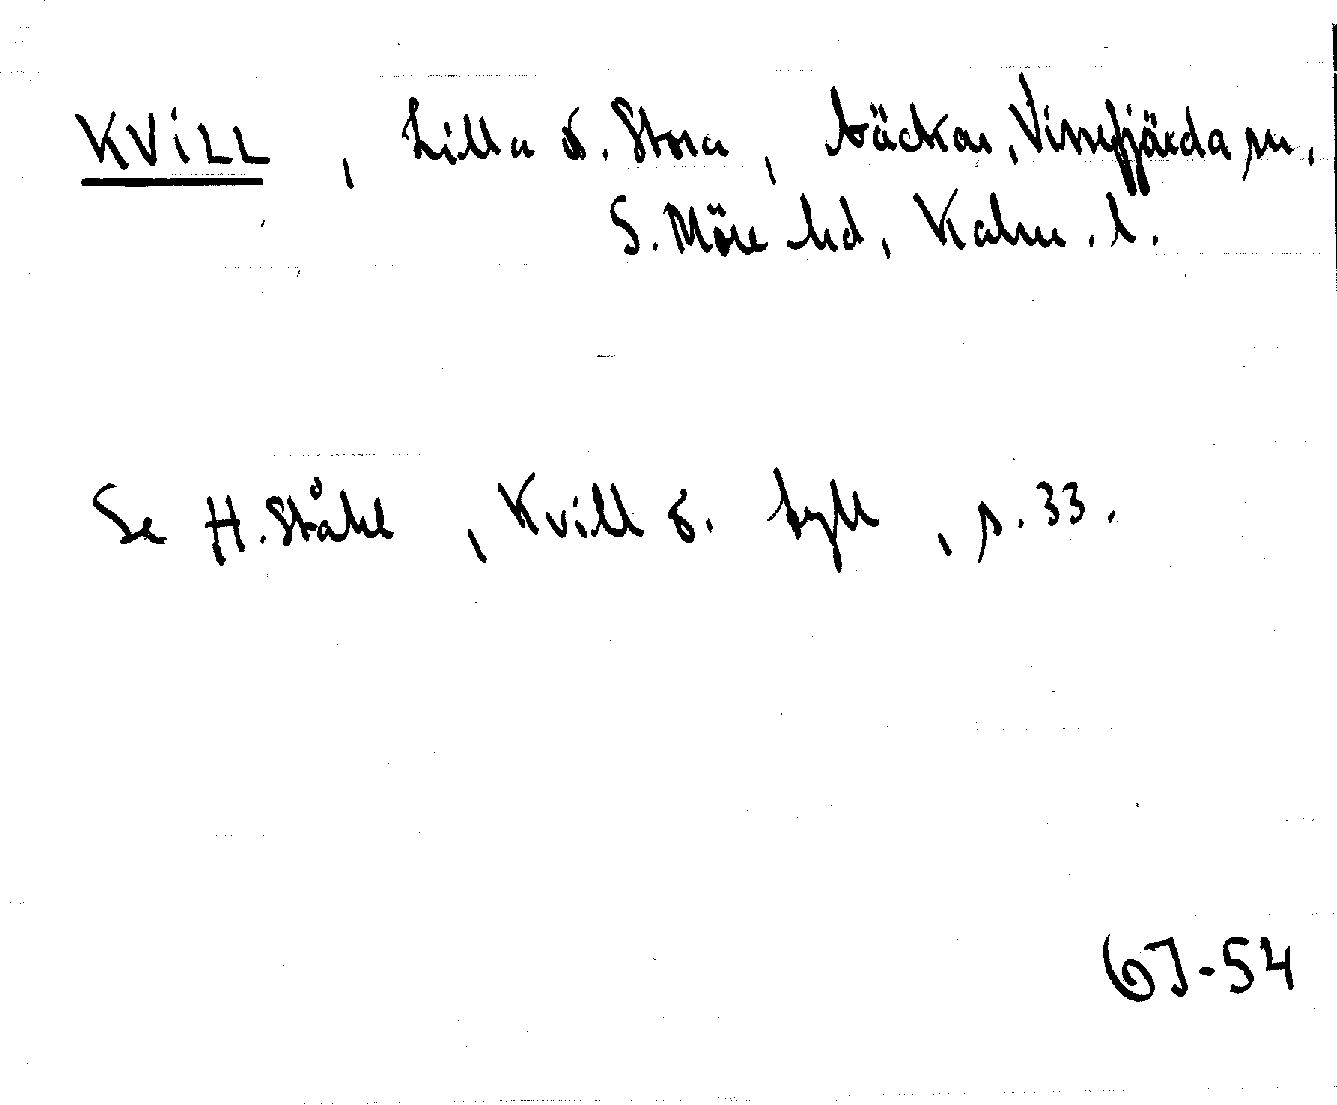 KVILL, Lilla o. Stora, bäckar, Vissefjärda sn,
S. Möre hd, Kalm. l.
Se H. Ståhl, Kvill o. tyll, s. 33.
GJ-54